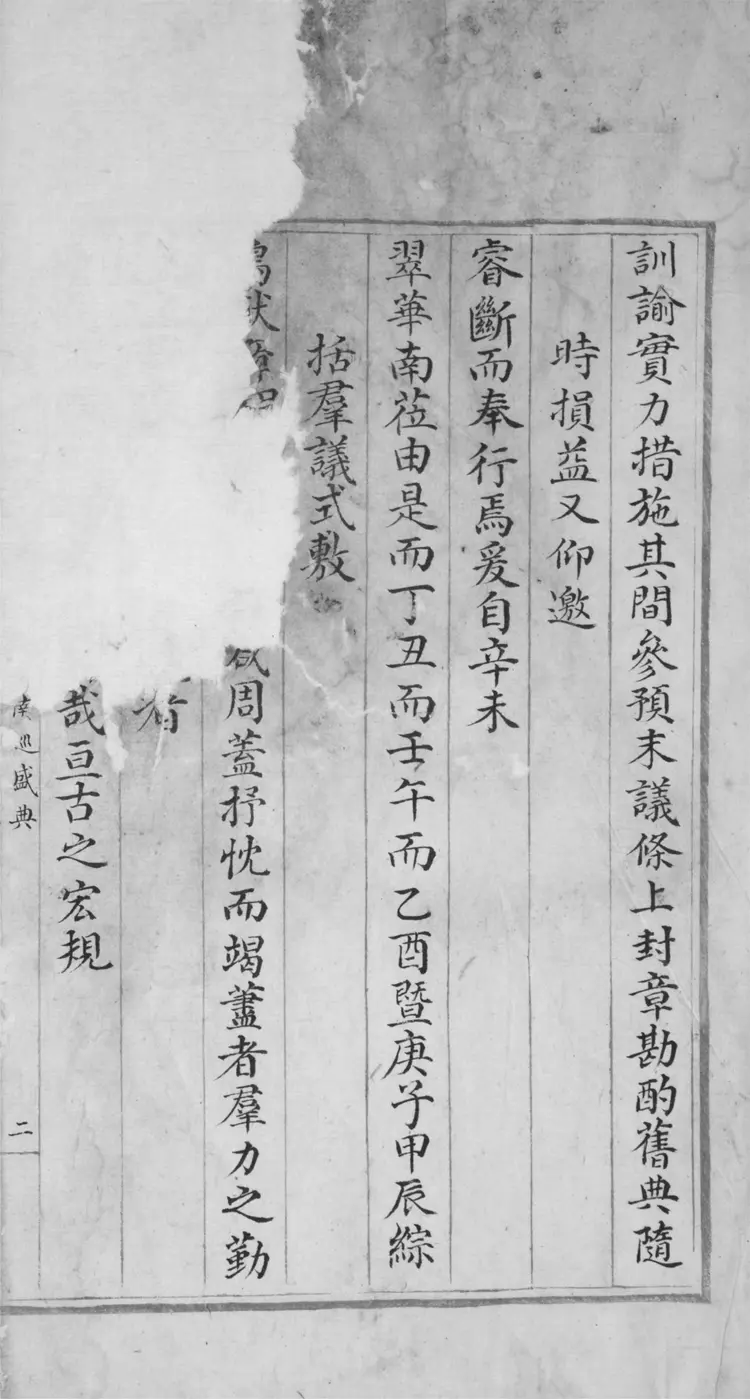 訓諭實力措施其間參預末議條上封章勘酌舊典隨
時損益又仰邀
睿斷而奉行焉爰自辛未
翠華南莅由是而丁丑而壬午而乙酉暨庚子甲辰綜
括羣議式敷
周蓋抒忱而竭藎者羣力之勤
哉亘古之宏規
南巡盛典
二